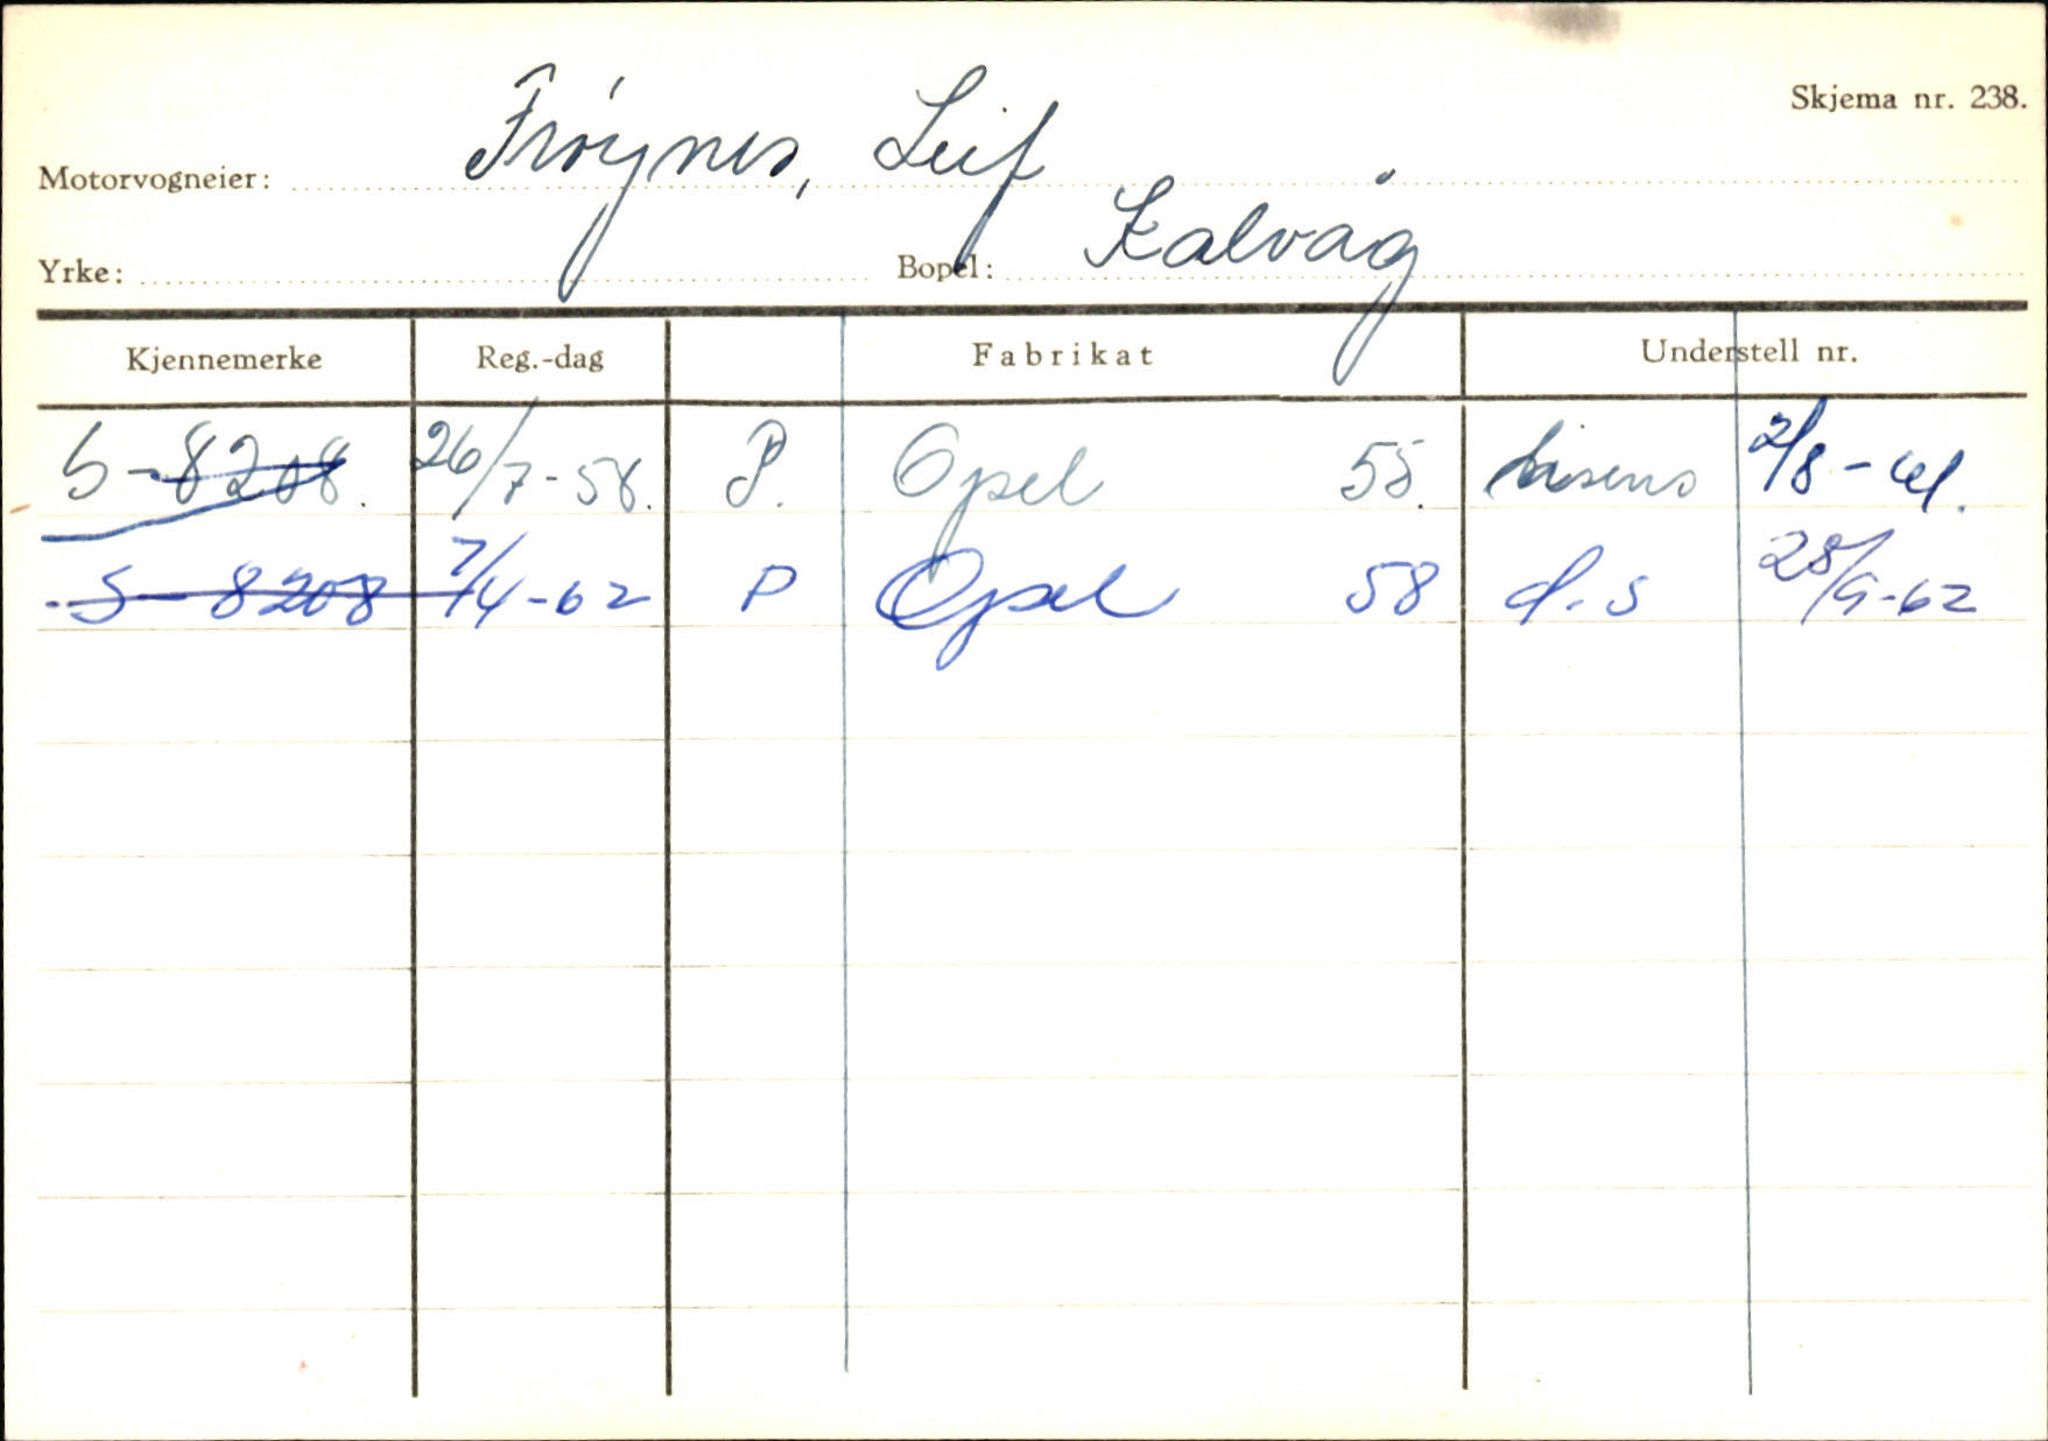 Skjema nr. 238.
Motorvogneier: Frøynes, Leif
Yrke: Bopel: Kalvåg
Kjennemerke Reg.-dag Fabrikat Understell nr.
S-8208. 26/7-58. P. Opel 55. lisens 2/8-61.
S-8208 7/4-62 P Opel 58 d.s 28/9-62